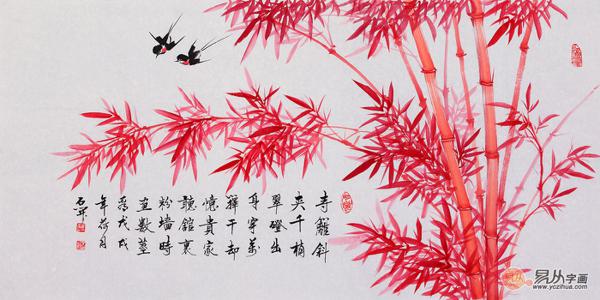 寺籬斜
夾千梢
翠磴出
身穿萬
籜干却
憶貴家
聽館裏
粉墻時
畫數莖
看戊戌
年荷月
石开
易从字画
www.yczihua.com